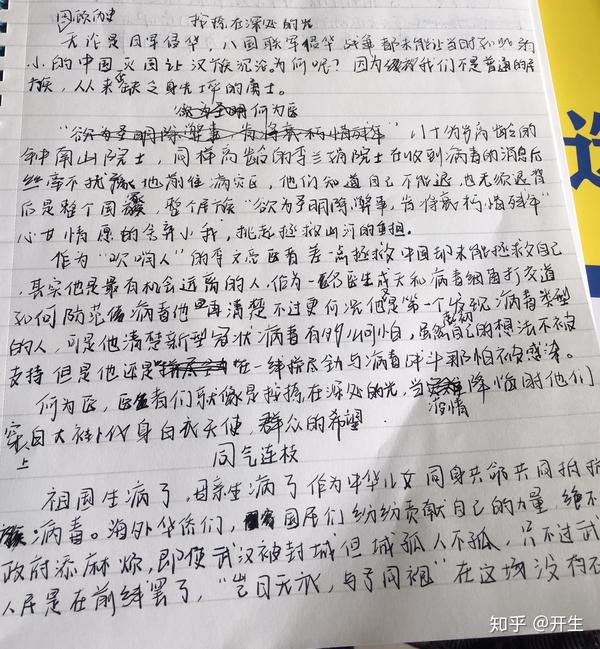 回顾历史
挖掘在深处的光
无论是日军侵华,八国联军侵华战争都未能让当时弱
小的中国灭国让汉族沉沦为何呢?因为我们不是普通的民
族,从来不缺乏身先士卒的勇士。
何为医
"欲为圣明除弊事,肯将衰朽惜残年"
钟南山院士,同样高龄的李兰娟院士在收到病毒的消息后
丝毫不犹豫地前往病灾区,他们知道自己不能退,也无须退背
后是整个国家,整个民族"欲为圣明除弊事,肯将衰朽惜残年"
心甘情愿的舍弃小我,挑起拯救山河的重担。
作为"吹哨人"的李文亮医者差一点拯救中国却未能拯救自己
,其实他是最有机会远离的人,作为一名医生成天和病毒细菌打交道
如何防范值病毒他再清楚不过更何况他是第一个发现病毒类型
的人,可是他清楚新型冠状病毒有多么可怕,虽然起初自己的想法不被
支持但是他还是在一线竭尽全力与病毒战斗那怕不幸感染。
何为医,医者们就像是挖掘在深处的光,当疫情降临时他们
穿上白大褂化身白衣天使,群众的希望.
同气连枝
祖国生病了,母亲生病了作为中华儿女同身共命共同抵抗
病毒。海外华侨们,国民们纷纷贡献自己的力量,绝不
政府添麻烦,即使武汉被封城但城孤人不孤,只不过武
人民是在前线罢了,"岂曰无衣,与子同袍"在这场没有
知乎 @开生